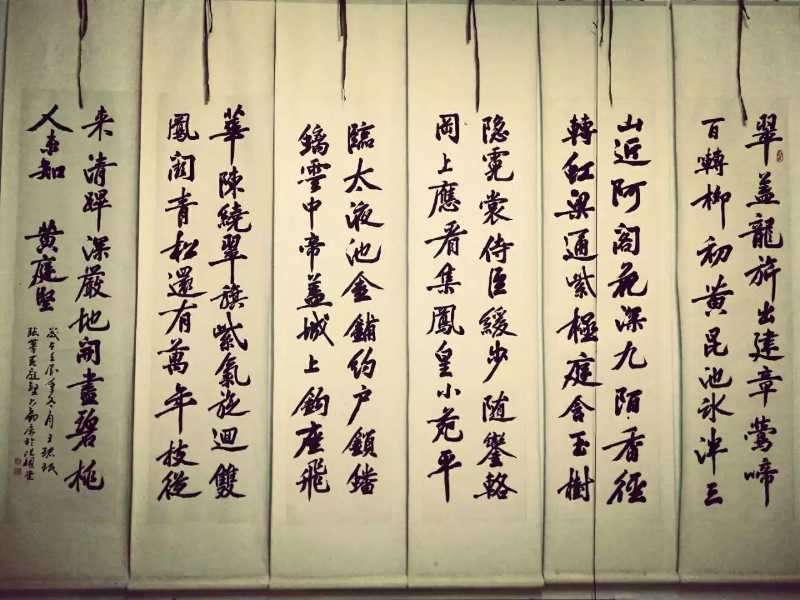 翠蓋龍旂出建章鶯啼
百轉柳初黄昆池冰泮三
山近阿閣花深九陌香徑
轉紅梁通紫極庭含玉樹
隐霓裳侍臣緩步随鑾輅
岡上應看集鳳皇小苑平
臨太液池金鋪約户鎖蟠
雲中帝蓋城上鉤座飛
華陳繞翠旗紫氣旋迴雙
鳳闕青松還有萬年枝從
来清蹕深嚴地開盡碧桃
人未知 黄庭堅